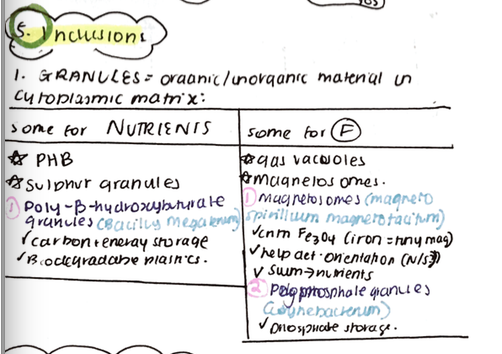 5. Inclusions
1. GRANULES = organic/inorganic material in
cytoplasmic matrix:
some for NUTRIENTS
☆ PHB
☆ Sulphur granules
① Poly-β-hydroxybutyrate
granules (Bacillus megaterium)
✓ carbon + energy storage
✓ Biodegradable plastics.
some for Ⓕ
☆ gas vacuoles
☆ magnetosomes.
① Magnetosomes (magneto
spirillum magnetotacticum)
✓ cntn Fe3O4 (iron = tiny mag)
✓ help det. orientation (N/S)
✓ swim → nutrients
② Polyphosphate granules
✓ phosphate storage.